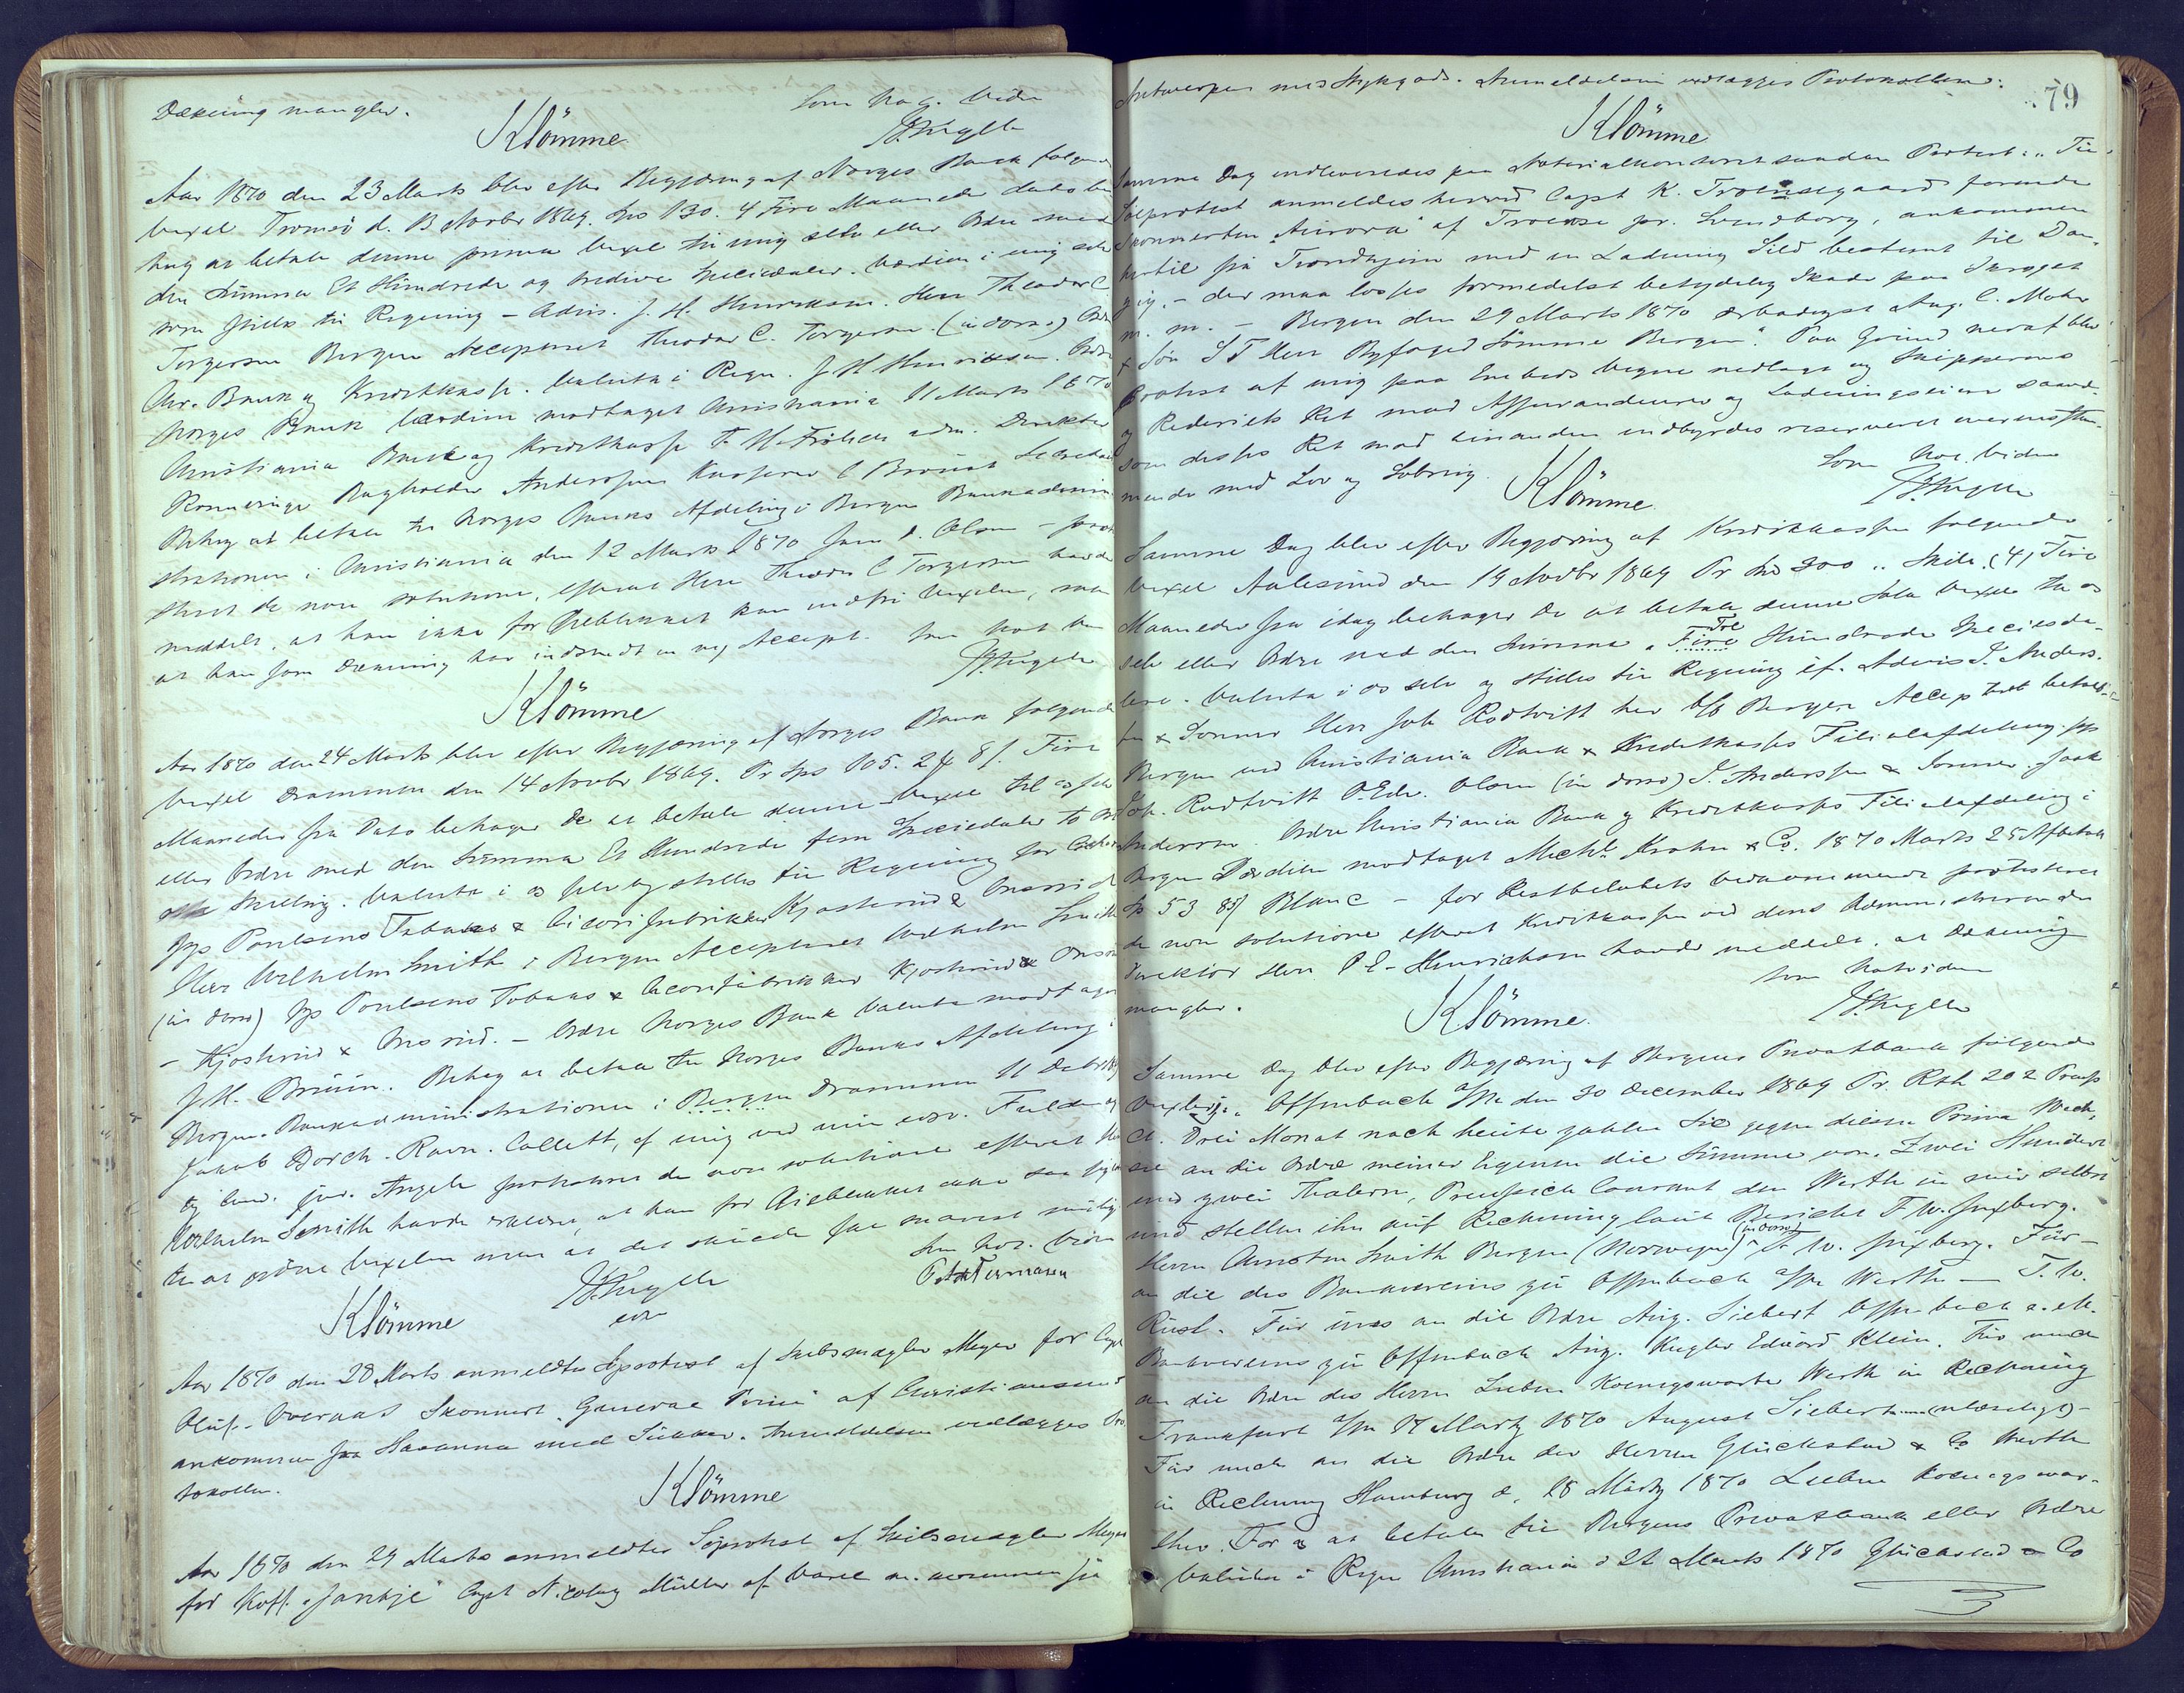 Dækning mangler.
Som Not. Vidne
Klömme
Aar 1870 den 23 Marts blev efter Begjæring af Norges Bank følgende
Vexel Tromsö d. 13 Novbr 1869. Sps 130. 4 Fire Maaneder dato be
hag at betale denne prima Vexel til mig selv eller Ordre med
den Summa Et Hundrede og tredive Speciedaler. Værdien i mig selv
som stilles til Regning – Advis. J. H. Henriksen. Herr Theodor C.
Torgersen Bergen Accepteret Theodor C. Torgersen. (in dorso) Ordre
Chr. Bank og Kreditkasse. Valuta i Regn. J H Henriksen. Ordre
Norges Bank Værdien modtaget Christiania 11 Marts 1870
Christiania Bank og Kreditkasse F. H. Frölich adm. Direktør
Bogholder Anderssen Kasserer C Secretair
Behag at betale til Norges Banks Afdeling i Bergen Bankadmini
strationen i Christiania den 12 Marts 1870 Olsen – prote
steret de non solutione, efterat Herr Theodor C Torgersen havde
meddelt, at han ikke for Øieblikket kan indfri Vexelen, men
at han som Dækning har indsendt en ny Accept. Som Not. Vidne
Klömme
Aar 1870 den 24 Marts blev efter Begjæring af Norges Bank følgende
Vexel Drammen den 14 Novbr 1869. Pr Sps 105. 2 # 8 ſ. Fire
Maaneder fra Dato behager De at betale denne Vexel til os selv
eller Ordre med den Summa Et Hundrede fem Speciedaler to Ort
otte Skilling. Valuta i os selv og stilles til Regning
Jps Poulsens Tobaks & Cicorifabrikker Kjøsterud & Onsrud
Herr Wilhelm Smith i Bergen Accepteret Wilhelm Smith
(in dorso) Jps Poulsens Tobaks & Cicorifabrikker Kjøsterud & Onsrud
– Kjøsterud & Onsrud. – Ordre Norges Bank Valuta modtaget
J. H. Bruun. Behag at betale til Norges Banks Afdeling i
Bergen. Bankadministrationen i Bergen Drammen 11
Jakob Borch. Ravn. Collett, af mig ved min edsv. Fuldmægtig
Cand. jur. Angell protesteret de non solutione efterat Herr
Wilhelm Smith havde erklæret, at han for Øieblikket ikke saa sig
til at ordne Vexelen men at det skulde ske snarest muligt
Som Not. Vidne
Klömme
Aar 1870 den 28 Marts anmeldtes Søprotest af Skibsmægler Meyer for Capt
Oluf Overaas Skonnert „General Prim" af Christianssund
ankommen fra Havanna med Sukker. Anmeldelsen vedlægges Pro
tokollen.
Klömme
Aar 1870 den 29 Marts anmeldtes Søprotest af Skibsmægler Meyer
for Koff. „Jantje" Capt Nicolay Müller af Varel ankommen fra
79
Antwerpen med Stykgods. Anmeldelsen vedlægges Protokollen.
Klömme
Samme Dag indleveredes paa Notarialkontoret saadan Protest: „Til
Søprotest anmeldes herved Capt K. Troensegaard førende
Skonnerten „Aurora" af Troense pr. Svendborg, ankommen
hertil fra Trondhjem med en Ladning Sild bestemt til Dan-
zig. – der maa losses formedelst betydelig Skade paa Skroget
m. m. – Bergen den 29 Marts 1870 ærbødigst Aug. C. Mohr
& Søn S T Herr Byfoged Lömme Bergen". Paa Grund heraf blev
Protest af mig paa Embeds Vegne nedlagt og Skipperens
og Rederiets Ret mod Assurandeurer og Ladningseiere saavel
som disses Ret mod hinanden indbyrdes reserveret overensstem-
mende med Lov og Sædvane.
Som Not. Vidne
Klömme
Samme Dag blev efter Begjæring af Kreditkassen følgende
Vexel Aalesund den 19 Novbr 1869 Pr Sps 300 (4) Fire
Maaneder fra idag behager De at betale denne Sola Vexel til os
selv eller Ordre med den Summa „Fire Tre Hundrede Speciesda-
lere. Valuta i os selv og stilles til Regning ef. Advis J. Anders-
sen & Sønner Herr Joh. Rodtvitt her Bergen Accepteret betales
Bergen ved Christiania Bank & Kreditkasses Filialafdeling.
Joh. Rodtvitt P. Edv. Olsen (in dorso) J. Anderssen & Sønner.
Andersen. Ordre Christiania Bank og Kreditkasses Filialafdeling i
Bergen Værdien modtaget Michl. Krohn & Co. 1870 Marts 25 Afbetalt
Sp 53 85 ſ Blanc – for Restbeløbets Vedkommende protesteret
de non solutione efterat Kreditkassen ved dens Administrerende
Direktør Herr P. E. Henrichsen havde meddelt, at Dækning
mangler.
Som Not. Vidne
Klömme.
Samme Dag blev efter Begjæring af Bergens Privatbank følgende
Vexel: „Offenbach a/M den 30 December 1869 Pr. Rth 202 Preuss
Ct. Drei Monat nach heute zahlen Sie gegen diesen Prima Wech-
sel an die Ordre meiner Eigenen die Summe von Zwei Hundert
und zwei Thalern, Preussisch Courant den Werth in mir selbst
und stellen ihn auf Rechnung laut Bericht F W.
Herrn Smith Bergen (Norwegen) (in dorso) F. W. Für
an die des Bankvereins zu Offenbach a/M Werth –
Für uns an die Ordre Aug. Siebert Offenbach a. M.
Bankvereins zu Offenbach Aug. Kugler Eduard Klein. Für mich
an die Ordre des Herrn Koenigswarter Werth in Rechnung
Frankfurt a/M 17 Martz 1870 August Siebert (ulæseligt) –
Für mich an die Ordre der Herren Glückstad & Co Werth
in Rechnung Hamburg d. 18 Märtz 1870 Koenigswar-
ther. For os at betale til Bergens Privatbank eller Ordre
Valuta i Regn Christiania d 21 Marts 1870 Glückstad & Co